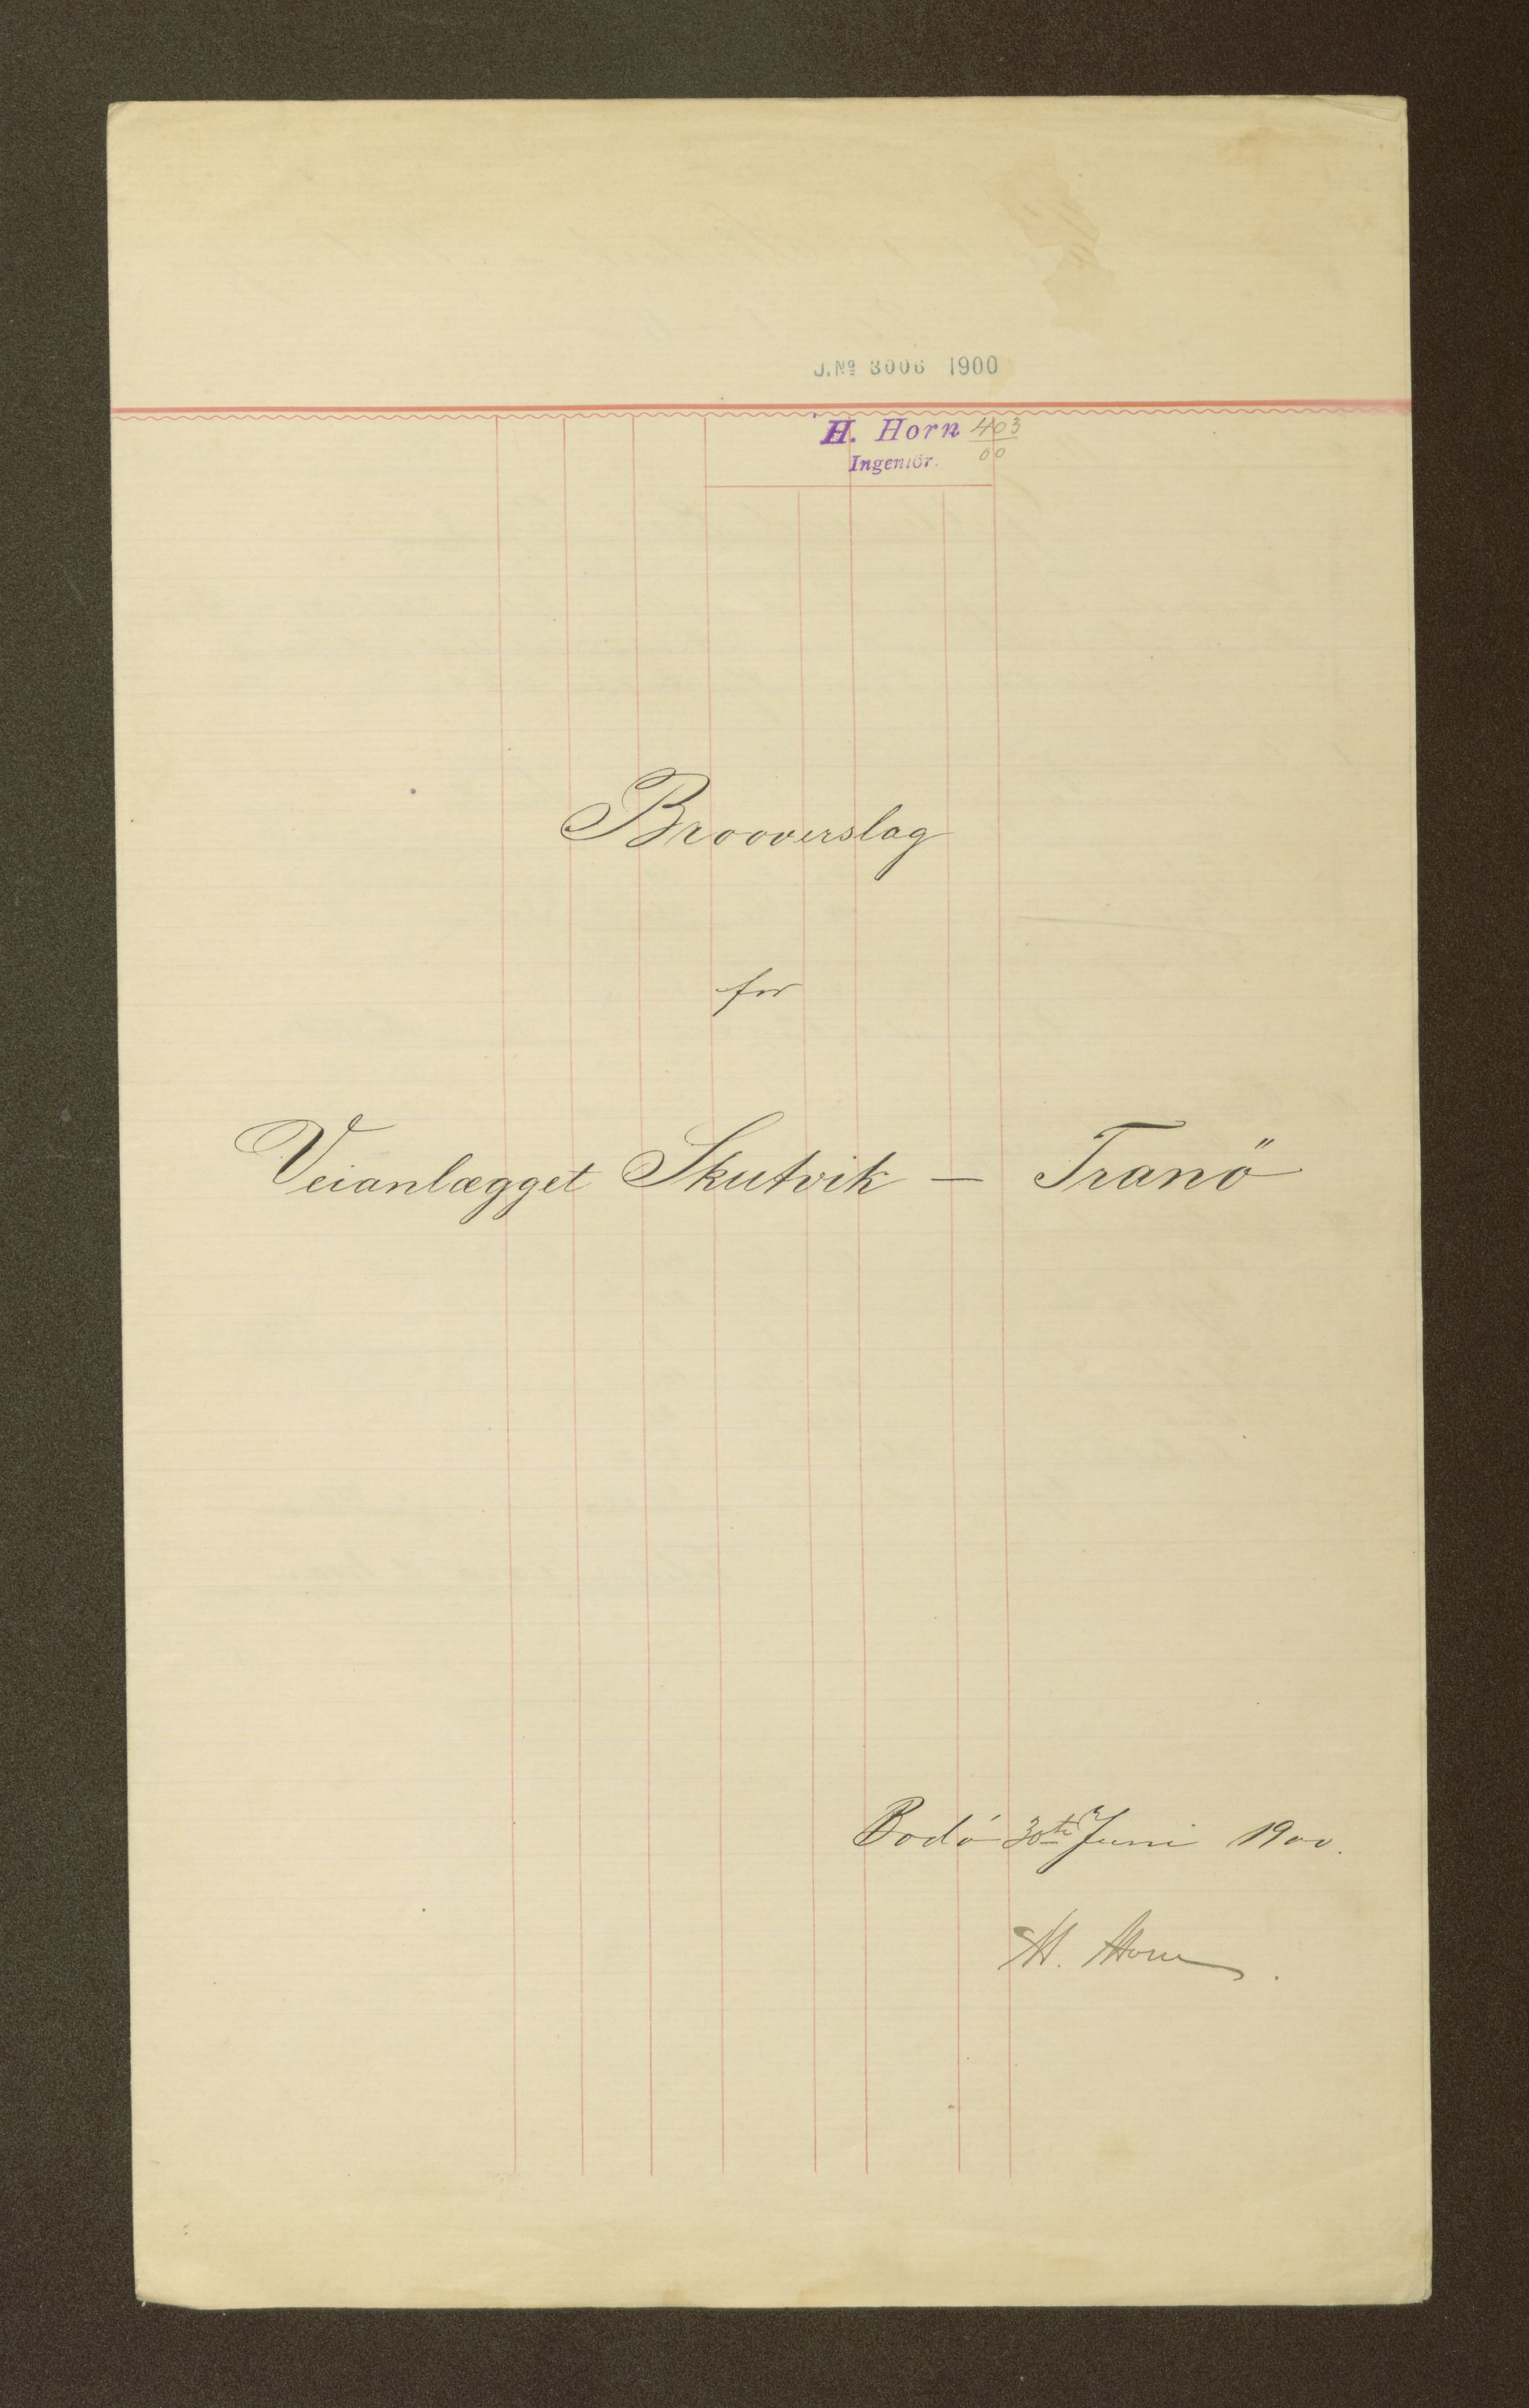 J.Nº 3006 1900
H. Horn 403/00
Ingeniör.
Brooverslag
for
Veianlægget Skutvik — Tranö
Bodö 30te Juni 1900.
H. Horn.